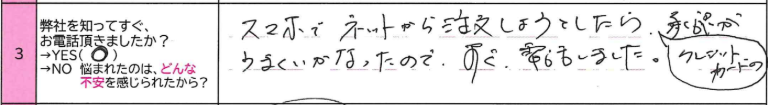 3
弊社を知ってすぐ、
お電話頂きましたか？
→YES( ○ )
→NO 悩まれたのは、どんな
不安を感じられたから？
スマホで ネットから注文しようとしたら、承認が
うまくいかなったので、すぐ、電話しました。
クレジット
カードの